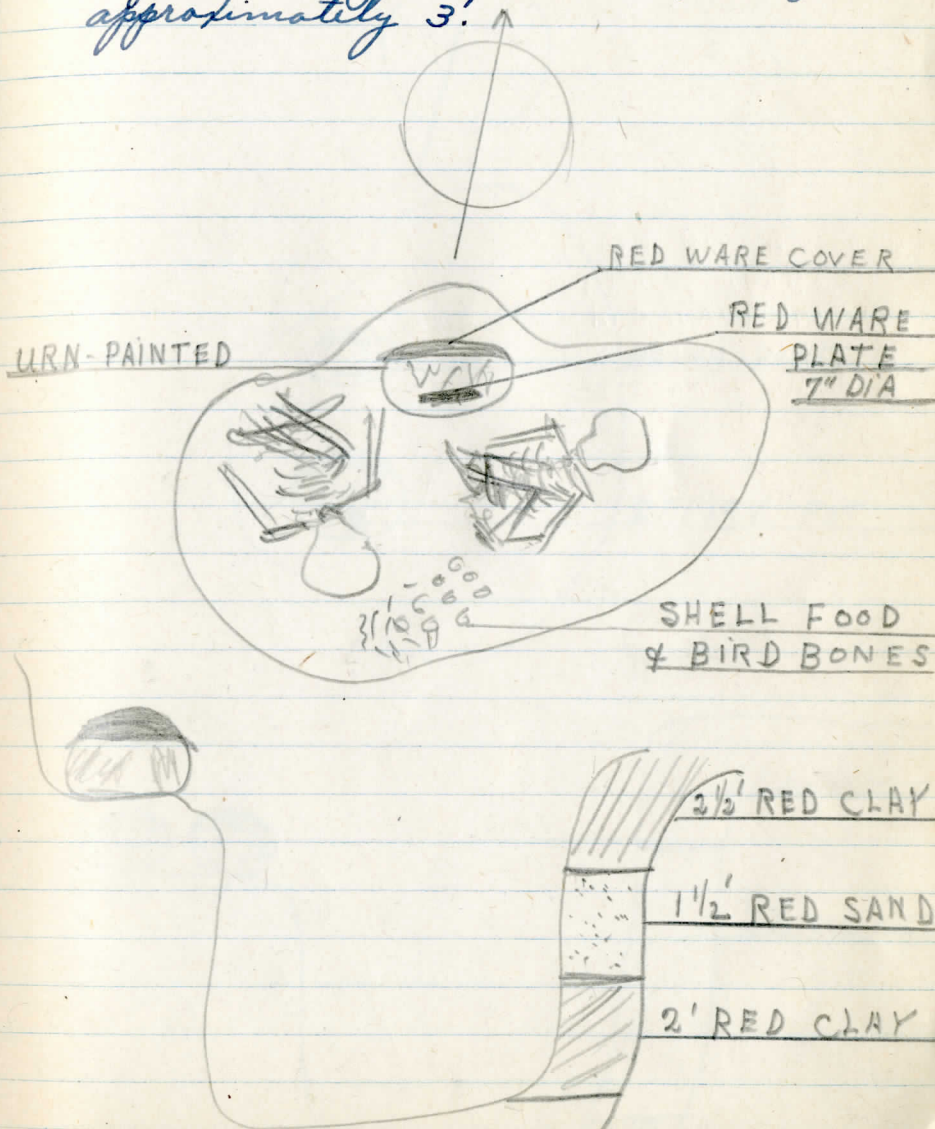 approximately 3'.
RED WARE COVER
RED WARE
PLATE
7" DIA
URN-PAINTED
SHELL FOOD
& BIRD BONES
2 1/2' RED CLAY
1 1/2' RED SAND
2' RED CLAY